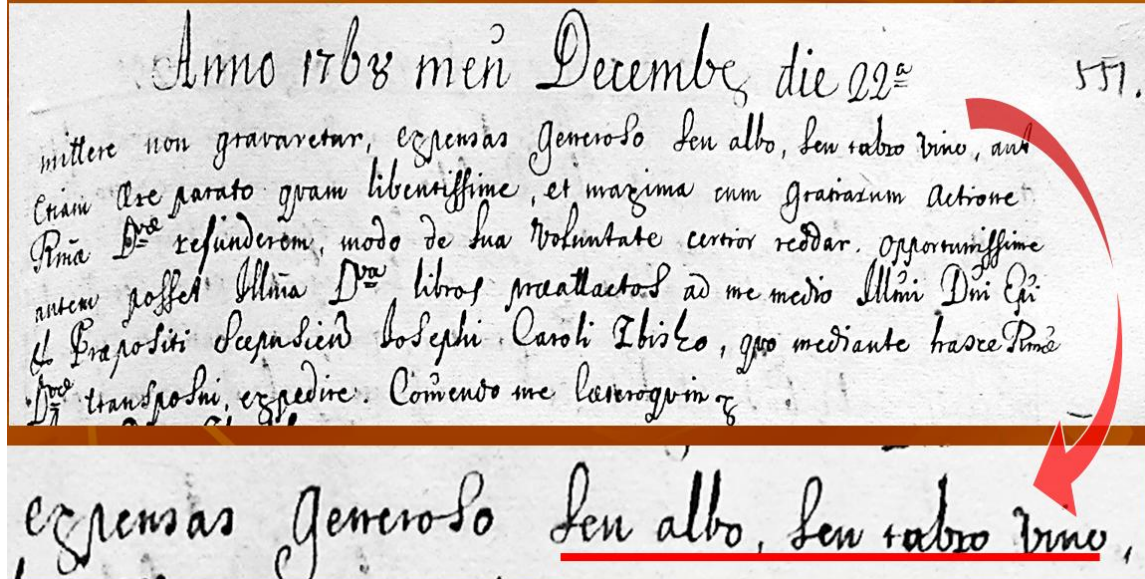 Anno 1768 meñ Decembr die 22ª 551.
mittere non gravaretur, expensas generoso seu albo, seu rubro vino, aut
etiam ære parato quam libentissime, et maxima cum gratiarum actione
Rmæ Dvæ refunderem, modo de sua voluntate certior reddar. opportunissime
autem posset Illma Dva libros præattactos ad me medio Illmi Dni Epi
et Præpositi Scepusien Josephi Caroli Zbisko, quo mediante hasce Rmæ
Dvæ transposui, expedire. Comendo me cæteroquin
expensas generoso seu albo, seu rubro vino,